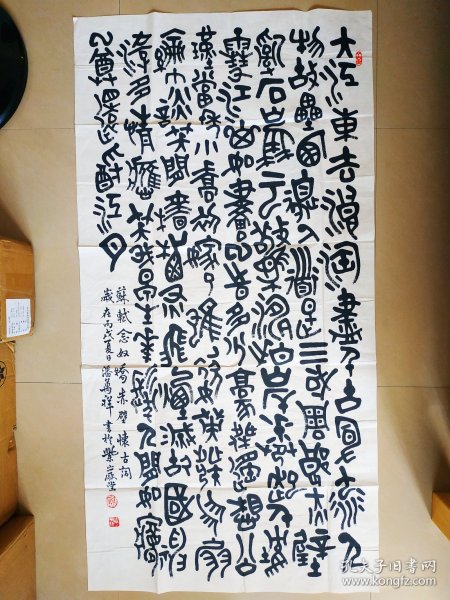 大江東去浪淘盡千古風流人
物故壘西邊人道是三國周郎赤壁
亂石崩雲驚濤岸捲起千堆
雪江山如畫一時多少豪傑遙想公
瑾當年小喬初嫁了雄姿英發羽扇
綸巾談笑間檣櫓灰飛煙滅故國神
遊多情應笑我早生華髮人間如夢
一尊還酹江月
蘇軾念奴嬌赤壁懷古詞
歲在丙戌夏日潘萬祥書於紫巖堂
孔夫子旧书网
www.kongfz.com